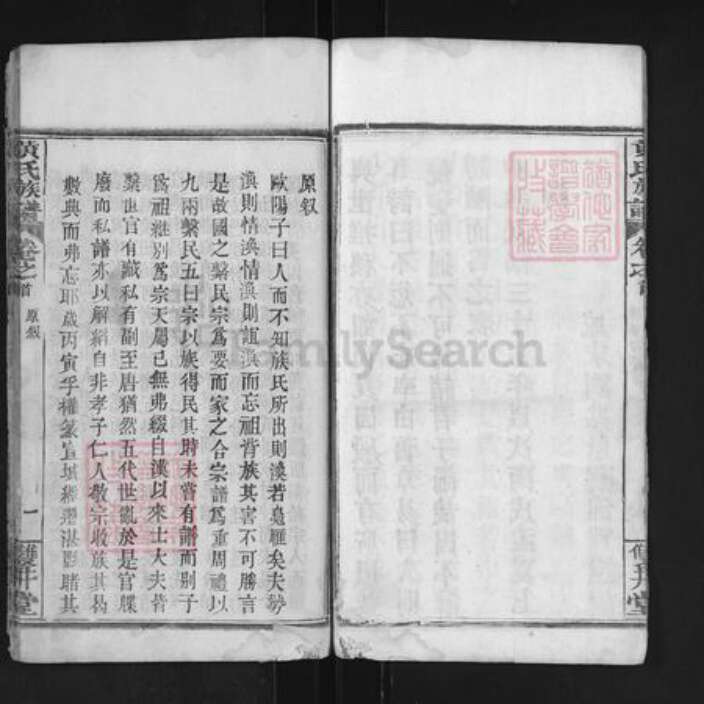 原叙
歐陽子曰人而不知族氏所出則渙若鳧雁矣夫勢
渙則情渙情渙則誼渙而忘祖背族其害不可勝言
是故國之繫民宗爲要而家之合宗譜爲重周禮以
九兩繫民五曰宗以族得民其時未嘗有譜而别子
爲祖繼别爲宗天屬已無弗綴自漢以來士大夫皆
繫世官有藏私有副至唐猶然五代世亂於是官牒
廢而私譜亦以解紐自非孝子仁人敬宗收族其曷
敷典而弗忘耶歲丙寅予權篆宣城經歷湛影睹其
黄氏族譜
卷之首
原叙
一
雙井堂
FamilySearch
黄氏族譜
卷之首
雙井堂